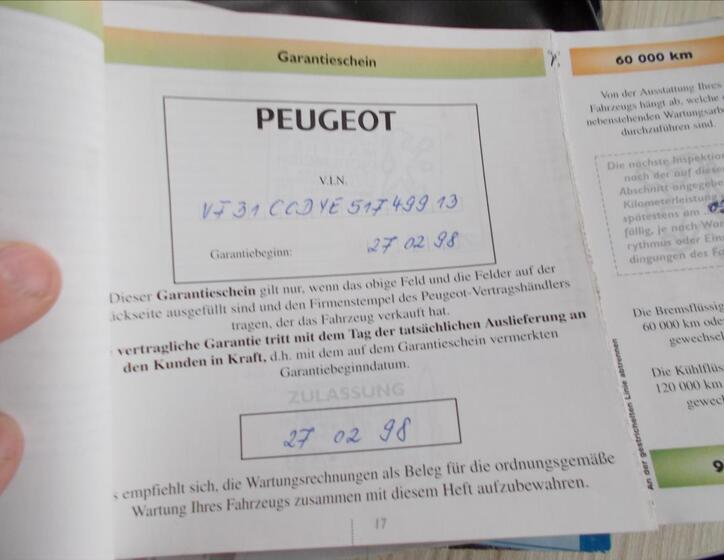 Garantieschein
PEUGEOT
V.I.N.
VF31CCDYE51749913
Garantiebeginn: 27 02 98
Dieser Garantieschein gilt nur, wenn das obige Feld und die Felder auf der
ückseite ausgefüllt sind und den Firmenstempel des Peugeot-Vertragshändlers
tragen, der das Fahrzeug verkauft hat.
vertragliche Garantie tritt mit dem Tag der tatsächlichen Auslieferung an
den Kunden in Kraft, d.h. mit dem auf dem Garantieschein vermerkten
Garantiebeginndatum.
ZULASSUNG
27 02 98
s empfiehlt sich, die Wartungsrechnungen als Beleg für die ordnungsgemäße
Wartung Ihres Fahrzeugs zusammen mit diesem Heft aufzubewahren.
17
60 000 km
Von der Ausstattung Ihres
Fahrzeugs hängt ab, welche
nebenstehenden Wartungsarb
durchzuführen sind.
Die nächste Inspektion
nach der auf diesem
Abschnitt angegebe
Kilometerleistung
spätestens am
fällig, je nach War
rythmus oder Ein
dingungen des Fa
Die Bremsflüssig
60 000 km ode
gewechsel
Die Kühlflüs
120 000 km
gewec
An der gestrichelten Linie abtrennen
9